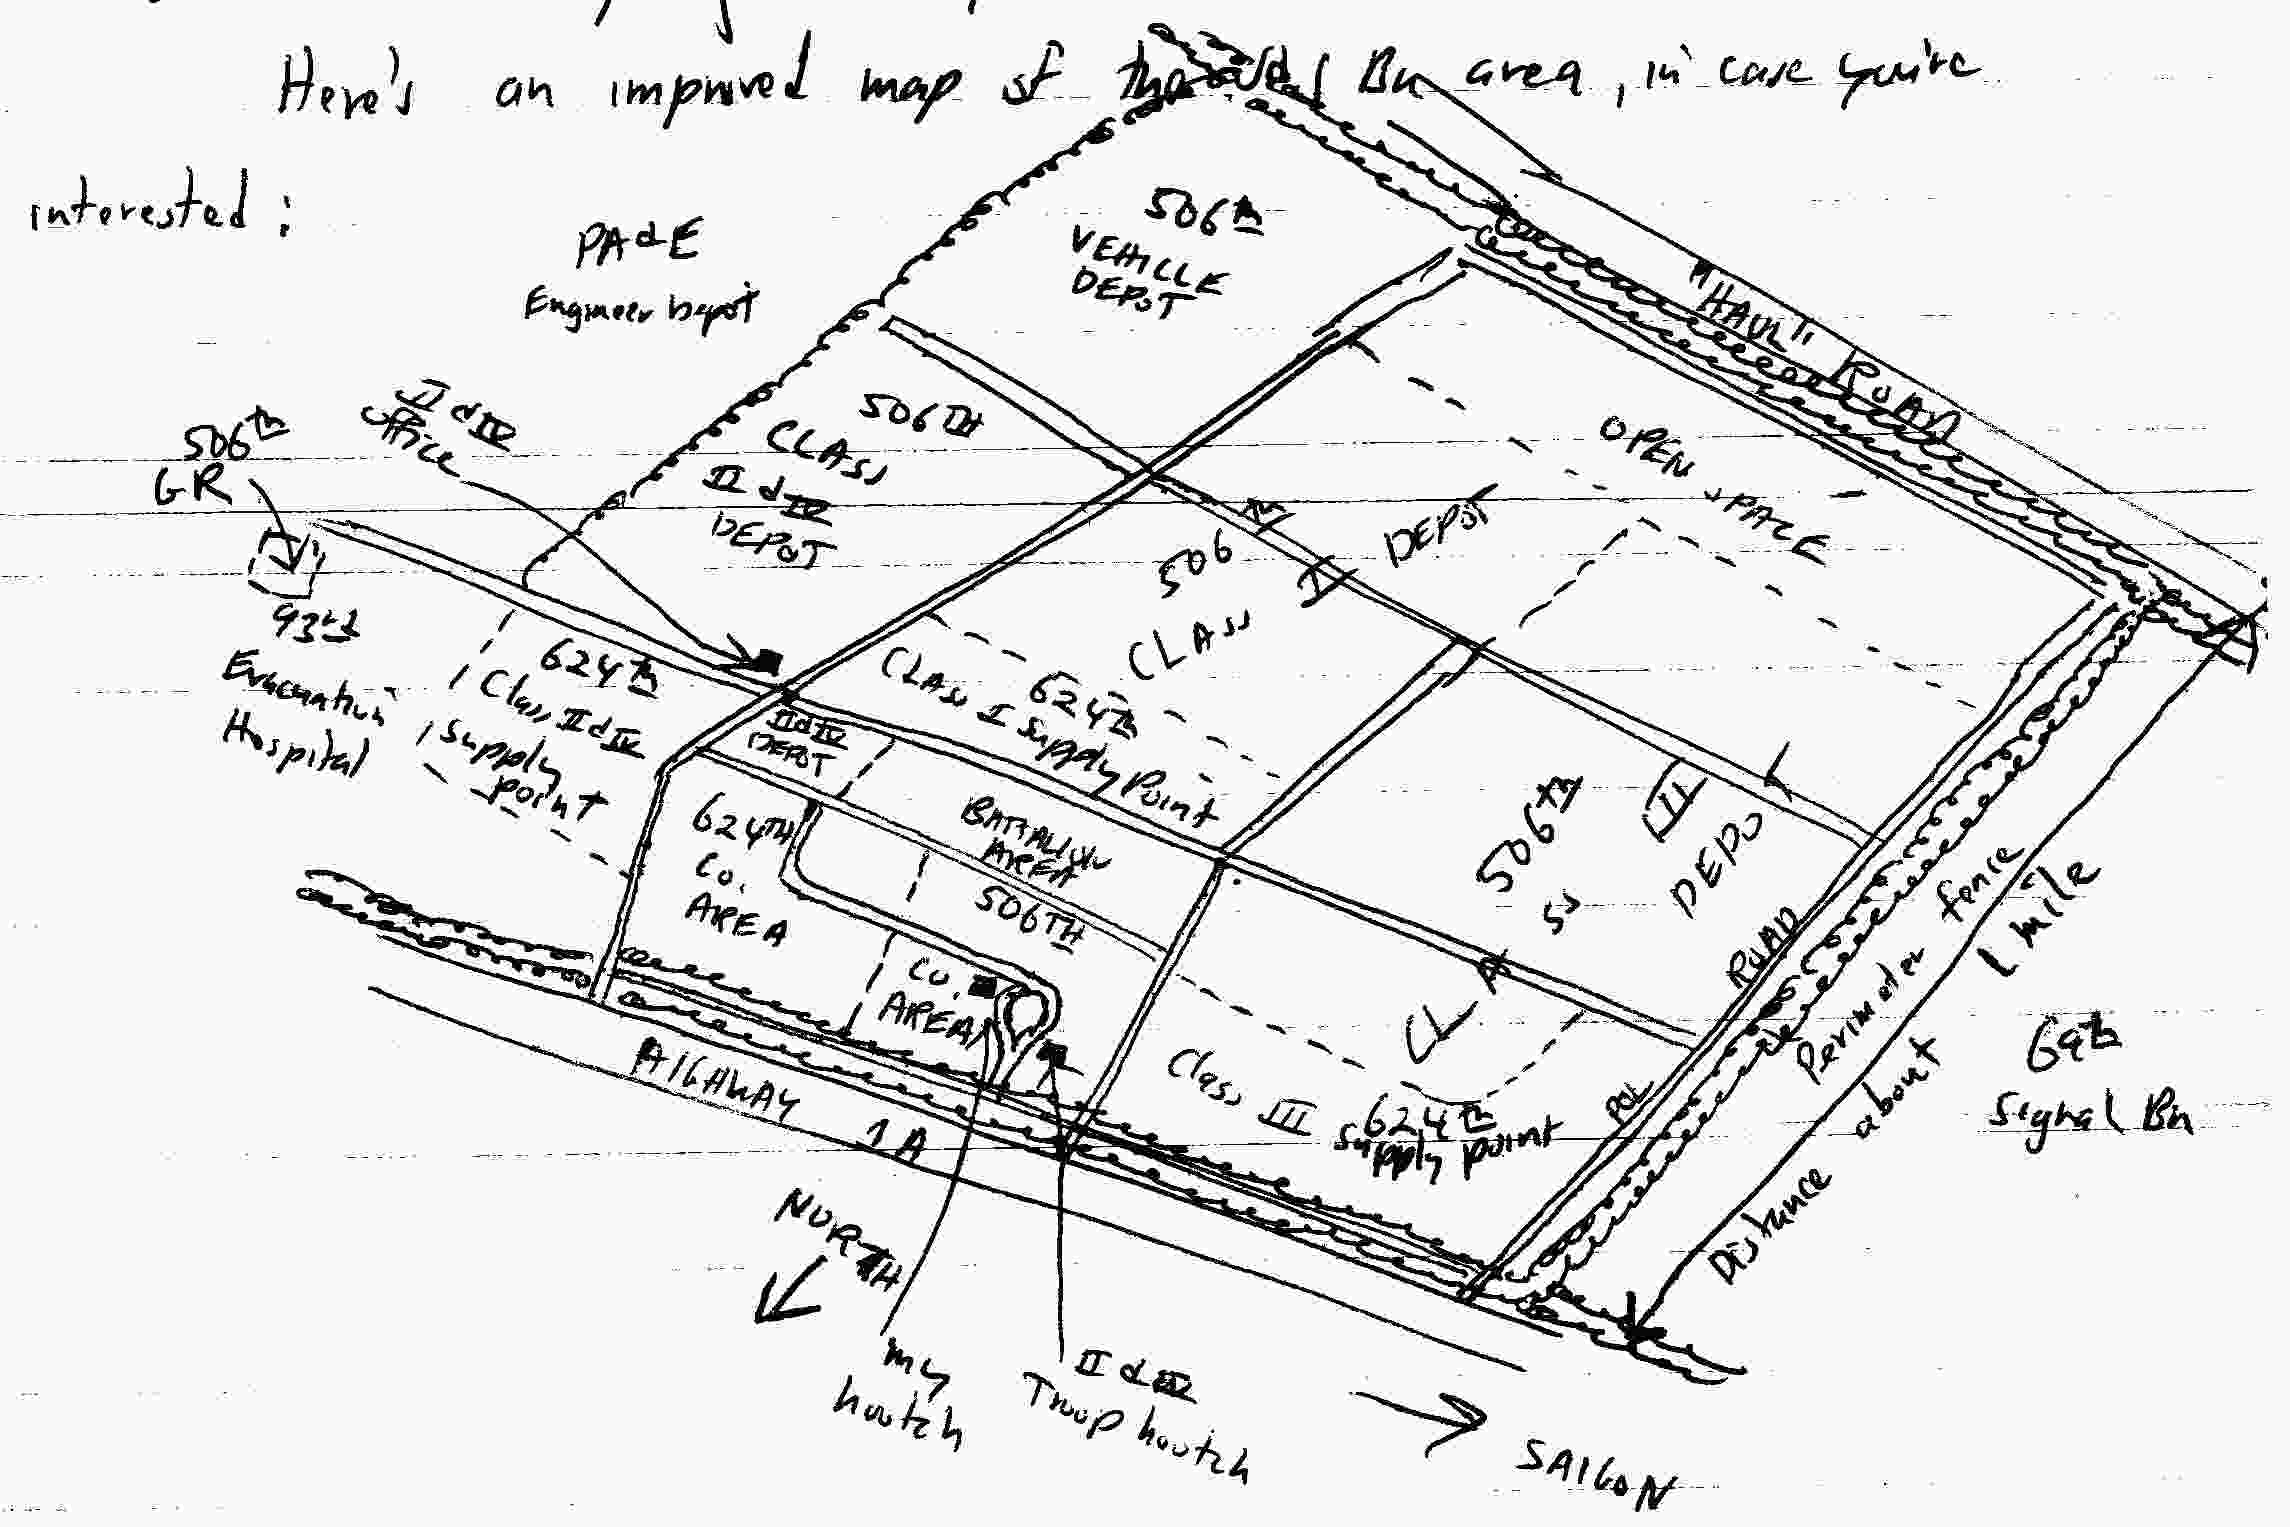 Here's an improved map of the Bn area, in case you're
interested:
PA&E
Engineer Depot
506th
VEHICLE
DEPOT
"HAUL" ROAD
II & IV
office
506th
GR
506TH
CLASS
II & IV
DEPOT
OPEN SPACE
506th
CLASS I
DEPOT
93rd
Evacuation
Hospital
624th
Class II & IV
Supply
point
CLASS I Supply Point
624th
II & IV
DEPOT
624TH
Co.
AREA
BATTALION
AREA
506TH
Co.
AREA
506th
CLASS III
DEPOT
POL ROAD
Perimeter fence
Distance about 1 mile
69th
Signal Bn
Class III
624th
supply point
HIGHWAY 1A
NORTH
my
hootch
II & IV
Troop hootch
SAIGON